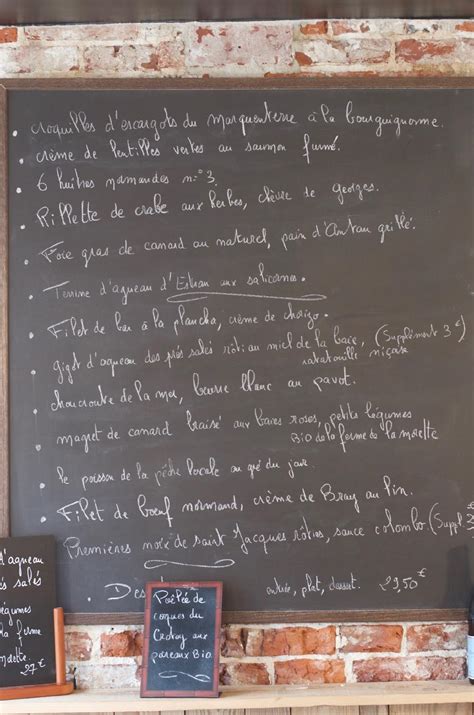 croquilles d'escargots du marquenterre à la bourguignonne.
crème de lentilles vertes au saumon fumé.
6 huîtres normandes n=°3.
Rillette de crabe aux herbes, chèvre de georges.
Foie gras de canard au naturel, pain d'Antan grillé.
Terrine d'agneau d'Estran aux salicornes.
Filet de bar à la plancha, crème de chorizo.
gigot d'agneau des prés salés rôti au miel de la baie, (Supplément 3€)
ratatouille niçoise
choucroute de la mer, beurre blanc au pavot.
magret de canard braisé aux baies roses, petits légumes
Bio de la ferme de la molette
le poisson de la pêche locale au gré du jour.
Filet de bœuf normand, crème de Bray au lin.
Premières noix de saint Jacques rôties, sauce colombo (Suppl 3
Des
entrée, plat, dessert. 29,50€
d'agneau
és salés
légumes
la ferme
molette.
27€
Poêlée de
coques du
Crotoy aux
poireaux Bio.